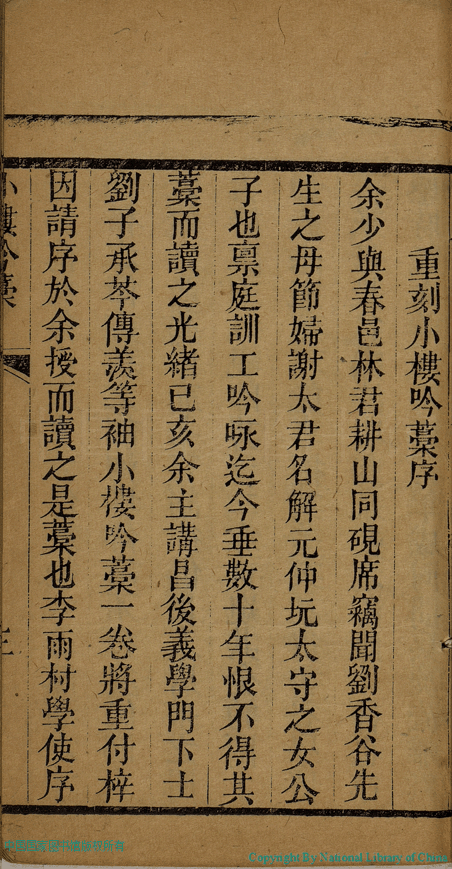 重刻小樓吟藁序
余少與春邑林君耕山同硯席竊聞劉香谷先
生之母節婦謝太君名解元仲坃太守之女公
子也禀庭訓工吟咏迄今垂數十年恨不得其
藁而讀之光緒己亥余主講昌後義學門下士
劉子承芩傳羡等袖小樓吟藁一卷將重付梓
因請序於余授而讀之是藁也李雨村學使序
小樓吟藁
Copyright By National Library of China